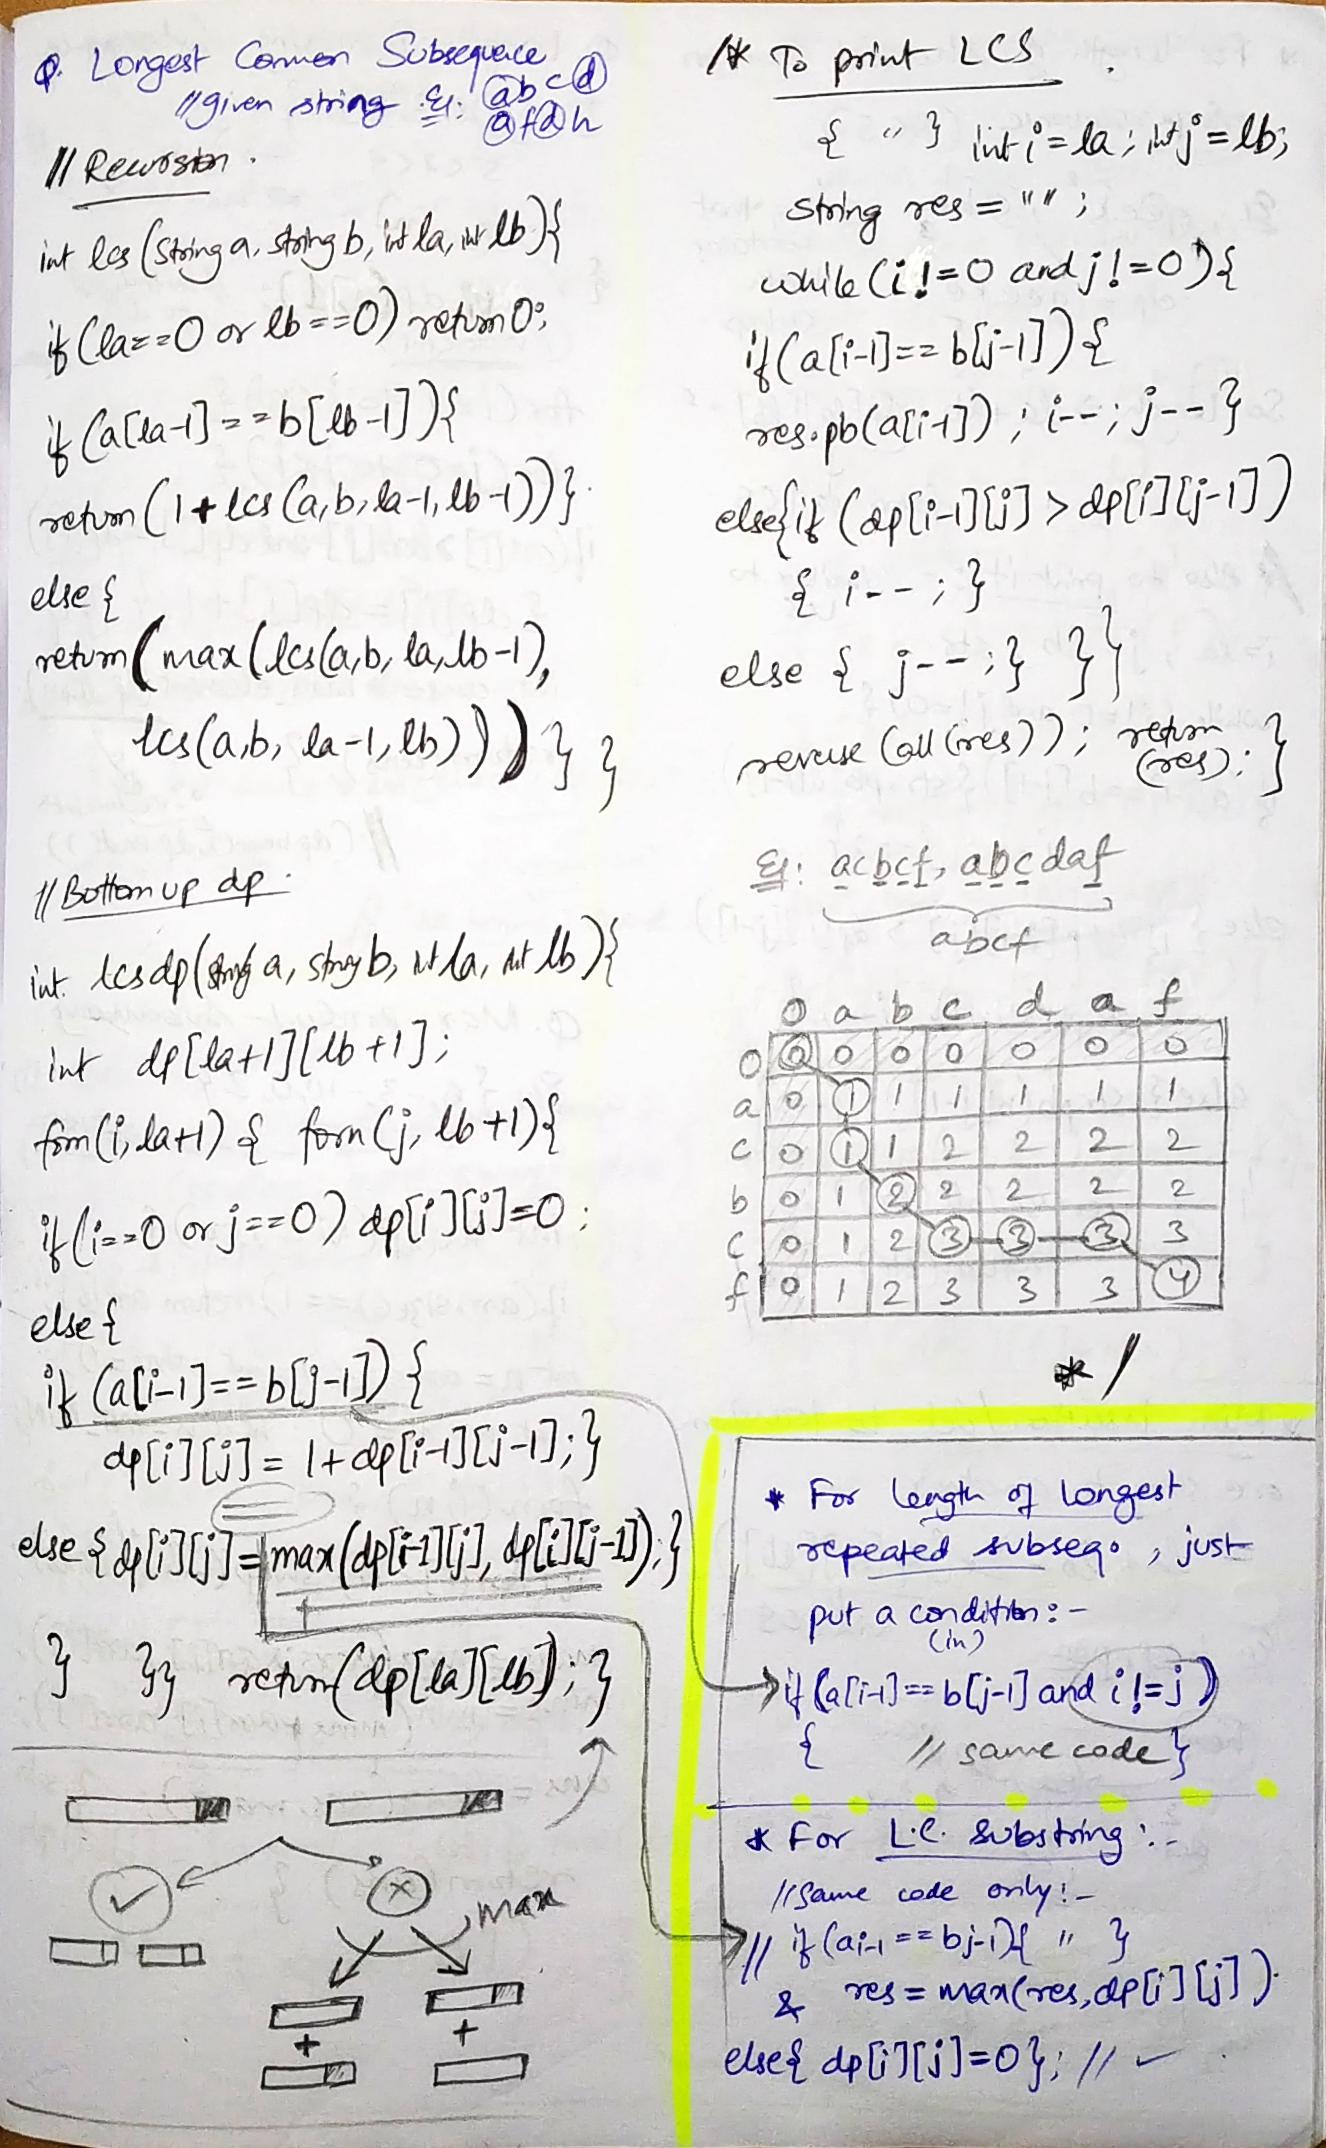 Q. Longest Common Subsequece
//given string Eg: abcd
afdh
// Recursion.
int lcs (String a, string b, int la, int lb){
if (la==0 or lb==0) return 0;
if (a[la-1]==b[lb-1]){
return (1+lcs(a,b,la-1,lb-1))}
else {
return (max(lcs(a,b,la,lb-1),
lcs(a,b,la-1,lb))) } }
// Bottom up dp.
int lcsdp(string a, string b, int la, int lb){
int dp[la+1][lb+1];
forn(i,la+1) { forn(j, lb+1){
if(i==0 or j==0) dp[i][j]=0;
else {
if (a[i-1]==b[j-1]) {
dp[i][j] = 1+dp[i-1][j-1];}
else { dp[i][j]=max(dp[i-1][j], dp[i][j-1]);}
} }} return(dp[la][lb]); }
max
+ +
/* To print LCS
{ " } int i=la; int j=lb;
string res = "";
while (i!=0 and j!=0){
if(a[i-1]==b[j-1]){
res.pb(a[i-1]); i--; j--}
else{if (dp[i-1][j] > dp[i][j-1])
{ i--;}
else { j--;} }}
reverse (all(res)); return
(res); }
Eg: acbcf, abcdaf
abcf
0 a b c d a f
0 0 0 0 0 0 0 0
a 0 1 1 1 1 1 1
c 0 1 1 2 2 2 2
b 0 1 2 2 2 2 2
c 0 1 2 3 3 3 3
f 0 1 2 3 3 3 4
*/
* For length of longest
repeated subseq. , just
put a condition:-
(in)
if (a[i-1]==b[j-1] and i!=j)
{ // same code}
* For L.C. Substring :-
//Same code only:-
// if(ai-1==bj-1){ " }
& res = max(res,dp[i][j])
else{ dp[i][j]=0}; //